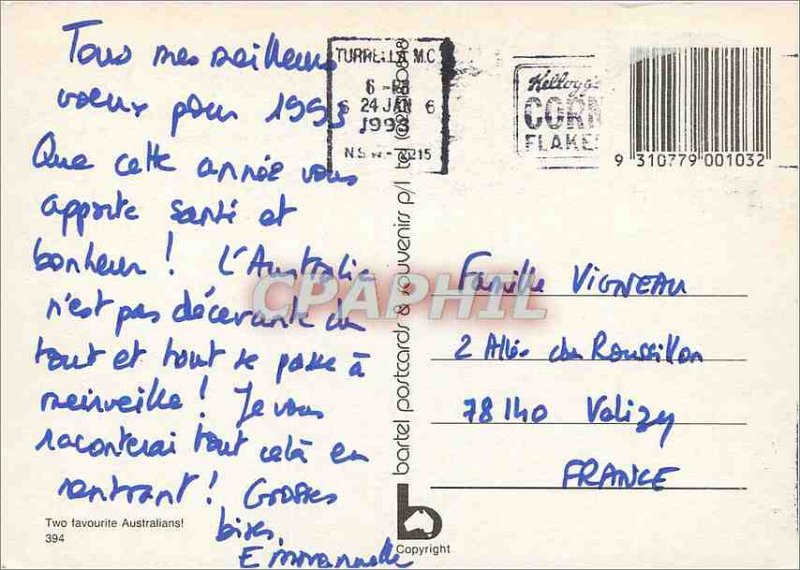 Tous mes meilleurs
voeux pour 1993
Que cette année vous
apporte santé et
bonheur ! L'Australie
n'est pas décevante du
tout et tout se passe à
merveille ! Je vous
raconterai tout celà en
rentrant ! Grosses
bises.
Emmanuelle
Two favourite Australians!
394
TURRELLA M.C
6 - PM
6 24 JAN 6
1993
N.S.W - 2215
Kellogg's
CORN
FLAKES
9 310779 001032
bartel postcards & souvenirs p/l tel
b
Copyright
CPAPHIL
Famille VIGNEAU
2 Allée du Roussillon
78140 Velizy
FRANCE